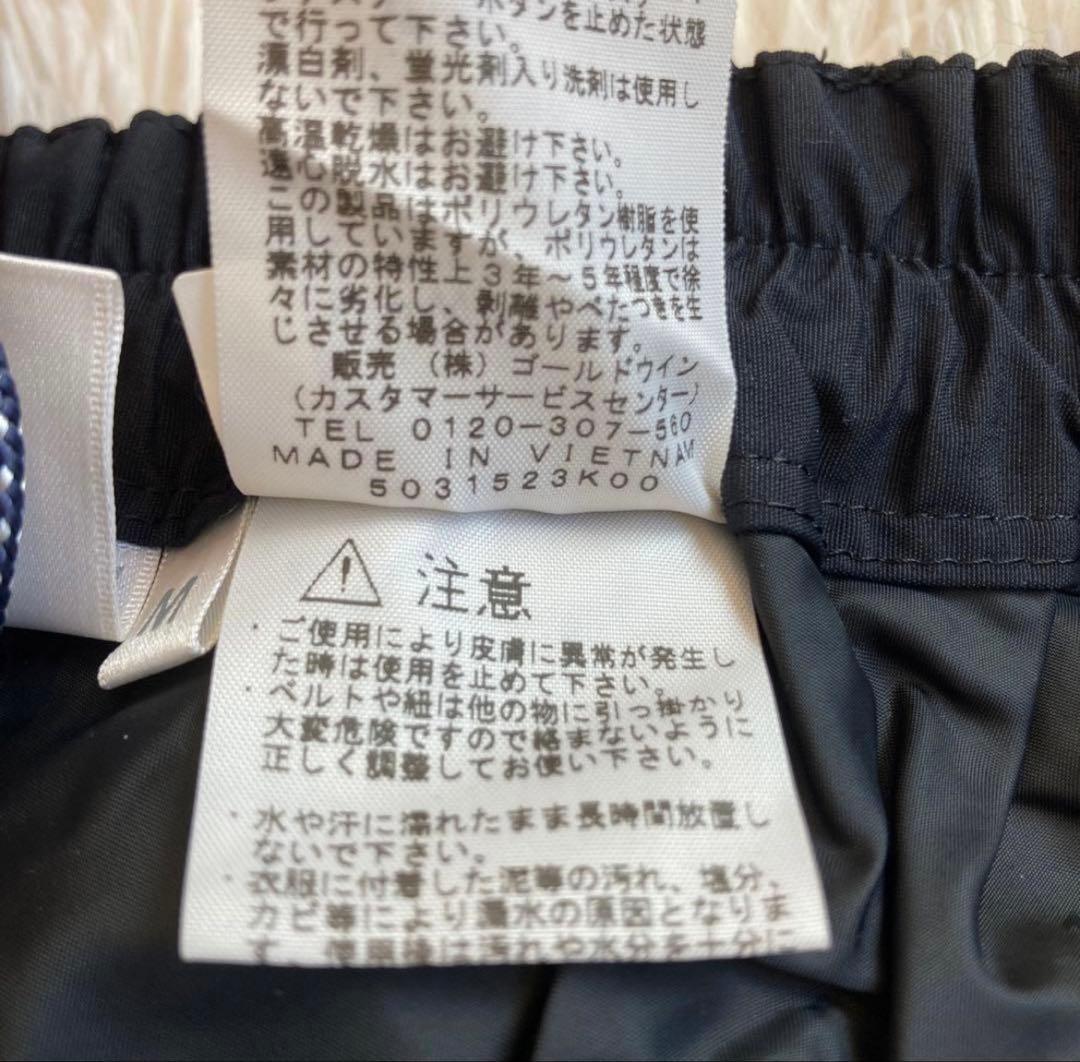 ボタンを止めた状態
で行って下さい。
漂白剤、蛍光剤入り洗剤は使用し
ないで下さい。
高温乾燥はお避け下さい。
遠心脱水はお避け下さい。
この製品はポリウレタン樹脂を使
用していますが、ポリウレタンは
素材の特性上3年~5年程度で徐
々に劣化し、剥離やべたつきを生
じさせる場合があります。
販売 (株) ゴールドウイン
(カスタマーサービスセンター)
TEL 0120-307-560
MADE IN VIETNAM
5031523K00
M
注意
・ご使用により皮膚に異常が発生し
た時は使用を止めて下さい。
・ベルトや紐は他の物に引っ掛かり
大変危険ですので絡まないように
正しく調整してお使い下さい。
・水や汗に濡れたまま長時間放置し
ないで下さい。
・衣服に付着した泥等の汚れ、塩分、
カビ等により漏水の原因となりま
す。使用後は汚れや水分を十分に